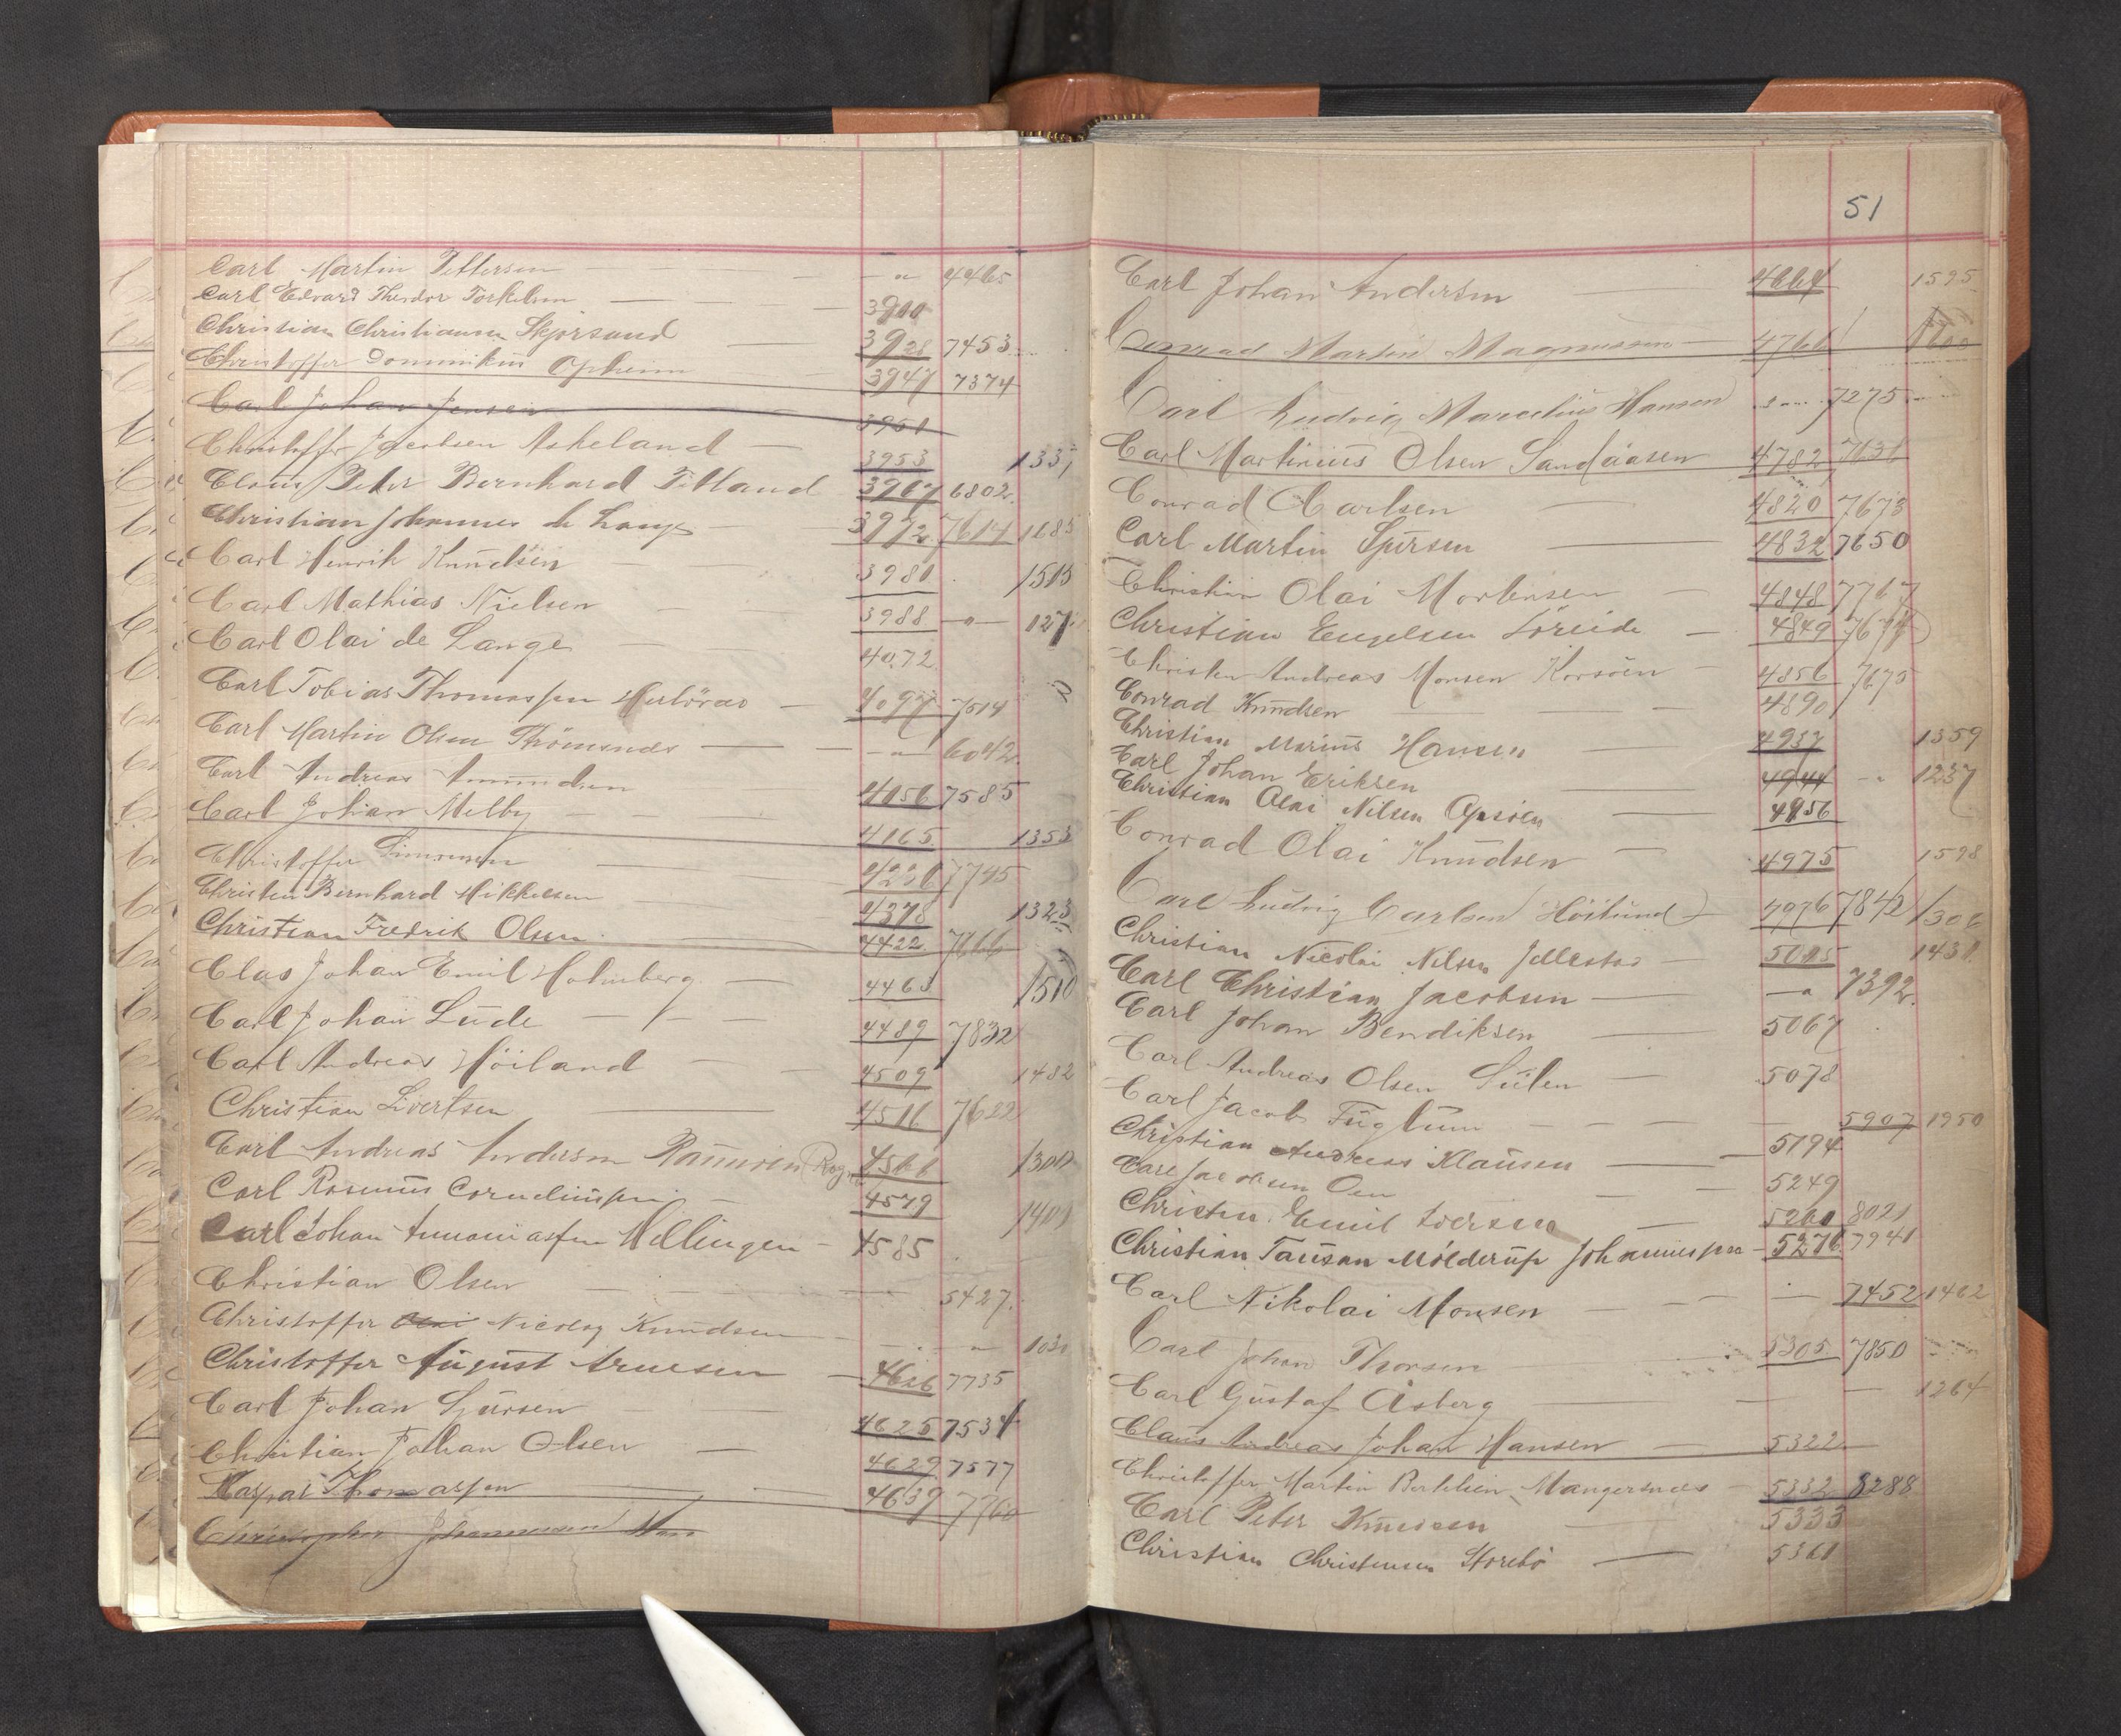 Carl Martin Pettersen — " 4465
Carl Edvard Theodor Torkelsen — 3900
Christian Christiansen Skjørsand — 3928 7453
Christoffer Dominikus Opheim — 3947 7374
Carl Johan Jensen 3951
Christoffer Jacobsen Askeland — 3953 133
Claus Peter Bernhard Titland 3967 6802
Christian Johannes de Lange — 3972 7614 1685
Carl Henrik Knudsen — 3980 1515
Carl Mathias Nielsen — 3988 — " — 127
Carl Olai de Lange — 4072
Carl Tobias Thomassen — 4097 7514
Carl Martin Olsen — " 6042
Carl Andreas Amundsen 4156 7585
Carl Johan Melby — 4165 1353
Christoffer Simonsen — 7745
Christen Bernhard Mikkelsen — 4378 1323
Christian Fredrik Olsen — 4422
Clas Johan Emil Holmberg — 4463 1510
Carl Johan Lude — 4489 7832
Carl Andreas Höiland — 4509 1482
Christian Sivertsen — 4516 7622
Carl Andreas Andersen 4561 1300
Carl Rasmus Corneliussen — 4579 1401
Carl Johan Willingen — 4585
Christian Olsen — 5427
Christoffer Nicolay Knudsen — "
Christoffer August Arnesen — 4616 7735
Carl Johan Sjursen — 4625 7534
Christian Johan Olsen — 4629 7577
Kaspar Thomassen — 4639 7760
Johannessen
51
Carl Johan Andersen 4664 1595
Conrad Martin Magnussen 4766
Carl Ludvig Marcelius Hansen 7275
Carl Martinius Olsen Sandaasen 4782 7638
Conrad Carlsen — 4820 7673
Carl Martin Sjursen — 4832 7650
Christian Olai Mortensen — 4848 7767
Christian Engelsen Löreide — 4849
Christen Andreas Monsen Korsöen — 4856 7675
Conrad Knudsen — 4890
Christian Marius Hansen — 4937 1359
Carl Johan Eriksen — 4944 — " 1237
Christian Olai Nilsen — 4956
Conrad Olai Knudsen — 4975 1598
Carl Ludvig Carlsen 4976 7842
Christian Nicolai Nilsen Jellestad — 5015 1431
Carl Christian Jacobsen — " 7392
Carl Johan Bendiksen — 5067
Carl Andreas Olsen Sulen — 5078
Carl Jacob Fuglum — 5907 1950
Christian Andreas Klausen — 5194
Carl Jacobsen Oen — 5249
Christen Emil Iversen — 5260 8021
Christian Tausan Mölderup Johannessen — 5276 7941
Carl Nikolai Monsen — 7452 1462
Carl Johan Thorsen — 5305 7850
Carl Gustaf Åsberg — 1264
Claus Andreas Johan Hansen — 5322
Christoffer Martin Mangersnes — 5332 8288
Carl Peter Knudsen — 5333
Christian Christensen Storebö — 5361